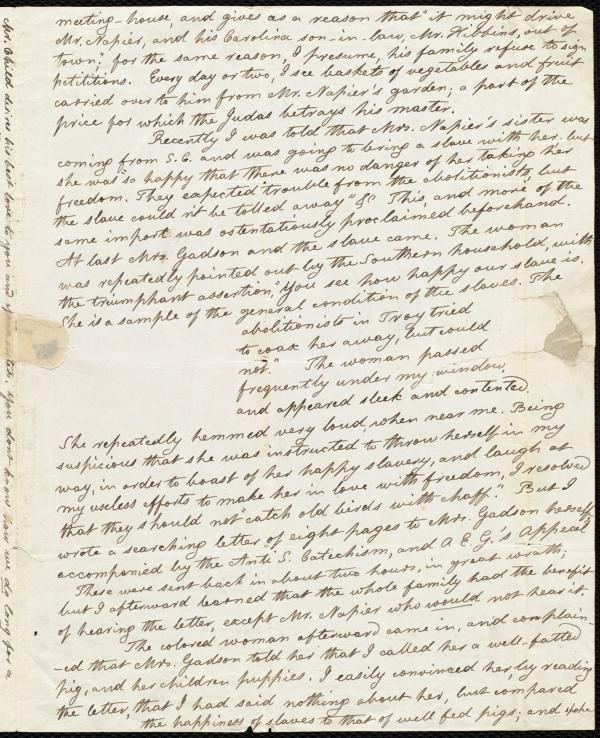 meeting-house, and gives as a reason that "it might drive
Mr. Napier, and his Carolina son-in-law, Mr. Hibbins, out of
town; for the same reason, I presume, his family refuse to sign
petitions. Every day or two, I see baskets of vegetables and fruit
carried over to him from Mr. Napier's garden; a part of the
price for which the Judas betrays his master.
Recently I was told that Mrs. Napier's sister was
coming from S.C. and was going to bring a slave with her. but
she was "so happy that there was no danger of her taking her
freedom. They expected trouble from the abolitionists, but
the slave could n't be tolled away" &c This, and more of the
same import was ostentatiously proclaimed beforehand.
At last Mrs. Gadson and the slave came. The woman
was repeatedly pointed out by the Southern household, with
the triumphant assertion, "You see how happy our slave is.
She is a sample of the general condition of the slaves. The
abolitionists in Troy tried
to coax her away, but could
not." The woman passed
frequently under my window,
and appeared sleek and contented.
She repeatedly hemmed very loud, when near me. Being
suspicious that she was instructed to throw herself in my
way, in order to boast of her happy slavery, and laugh at
my useless efforts to make her in love with freedom, I resolved
that they should not "catch old birds with chaff." But I
wrote a searching letter of eight pages to Mrs. Gadson herself,
accompanied by the Anti S. Catechism, and A. E. G.'s Appeal
These were sent back in about two hours, in great wrath;
but I afterward learned that the whole family had the benefit
of hearing the letter, except Mr. Napier who would not hear it.
The colored woman afterward came in, and complain-
-ed that Mrs. Gadson told her that I called her a well-fatted
pig, and her children puppies. I easily convinced her, by reading
the letter, that I had said nothing about her, but compared
the happiness of slaves to that of well fed pigs; and spoke
Mr. Child desires his best love to you and your sister. You dont know how we do long for a